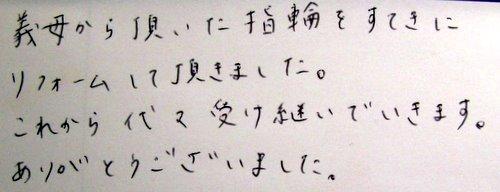 義母から頂いた指輪をすてきに
リフォームして頂きました。
これから代々受け継いでいきます。
ありがとうございました。